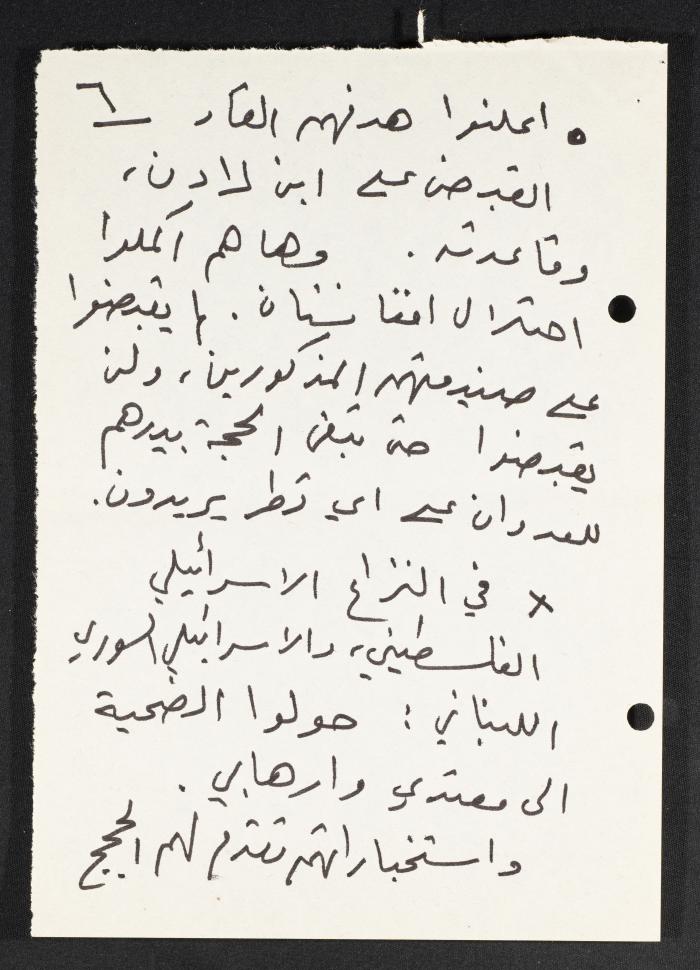 ٦
• اعلنوا هدفهم
القبض على ابن لادن،
وقاعدته. وها هم اكملوا
احتلال افغانستان. لم يقبضوا
على صنيعتهم المذكورين، ولن
يقبضوا حتى تبقى الحجة بيدهم
للعدوان على اي قطر يريدون.
x في النزاع الاسرائيلي
الفلسطيني، والاسرائيلي السوري
اللبناني: حولوا الضحية
الى معتدي وارهابي.
واستخباراتهم تقدم لهم الحجج